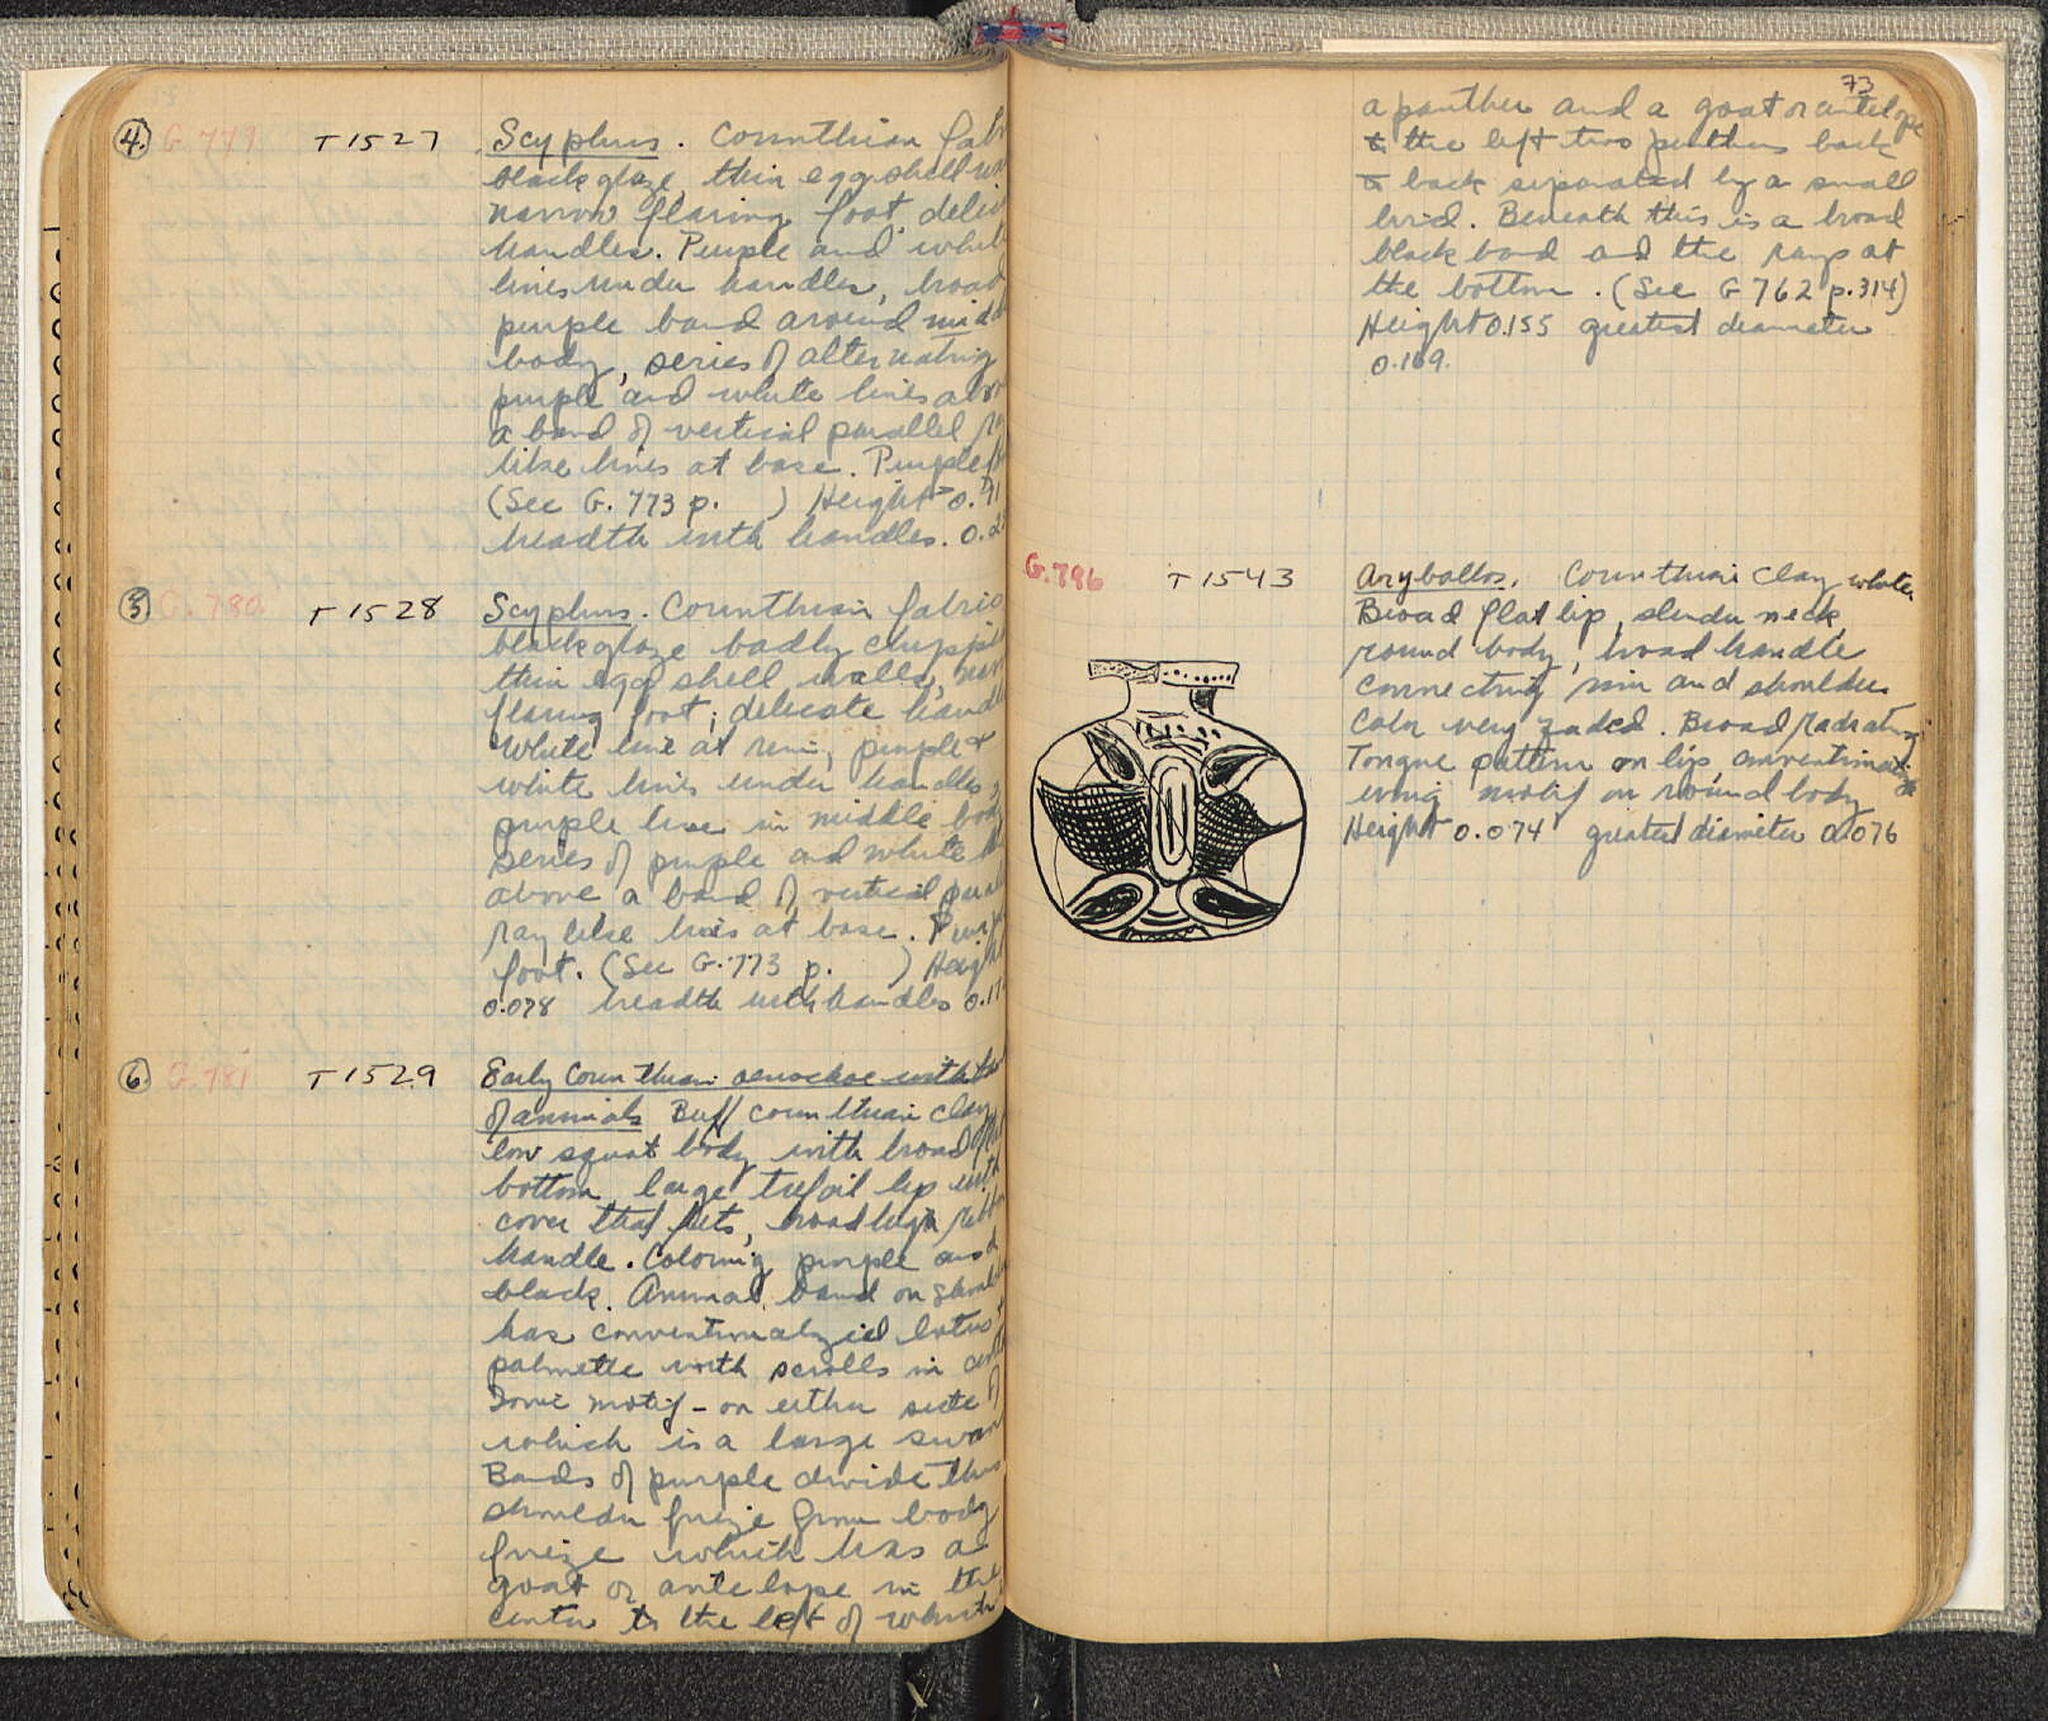 4. G. 779 T 1527 Scyphus. Corinthian fab
black glaze, thin egg shell
narrow flaring foot, delic
handles. Purple and whit
lines under handles, broad
purple band around midd
body, series of alternating
purple and white lines abo
a band of vertical parallel
like lines at base. Purple
(See G. 773 p. ) Height 0.
breadth with handles. 0.2
5 G. 780 T 1528 Scyphus. Corinthian fabric
black glaze badly chipped
thin egg shell walls,
flaring foot; delicate handl
White line at rim, purple +
white lines under handles,
purple line in middle body
series of purple and white
above a band of vertical para
ray like lines at base. Purp
foot. (See G. 773 p. ) Height
0.078 breadth with handles 0.17
6. G. 781 T 1529 Early Corinthian oenochoe with
of animals Buff Corinthian clay
low squat body with broad flat
bottom, large trefoil lip with
cover that fits, broad high ribbon
handle. Coloring purple and
black. Animal band on should
has conventionalyzied lotus +
palmette with scrolls in cent
Ionic motif - on either side of
which is a large swan
Bands of purple divide this
shoulder frieze from body
frieze which has a
goat or antelope in the
center to the left of which
73
a panther and a goat or antelope
to the left two panthers back
to back separated by a small
bird. Beneath this is a broad
black band and the rays at
the bottom. (See G 762 p. 314)
Height 0.155 greatest diameter
0.169.
G. 796 T 1543 Aryballos. Corinthian clay, white
Broad flat lip, slender neck,
round body, broad handle
connecting rim and shoulder.
Color very faded. Broad radiating
Tongue pattern on lip, conventionalize
wing motif on round body
Height 0.074 greatest diameter 0.076